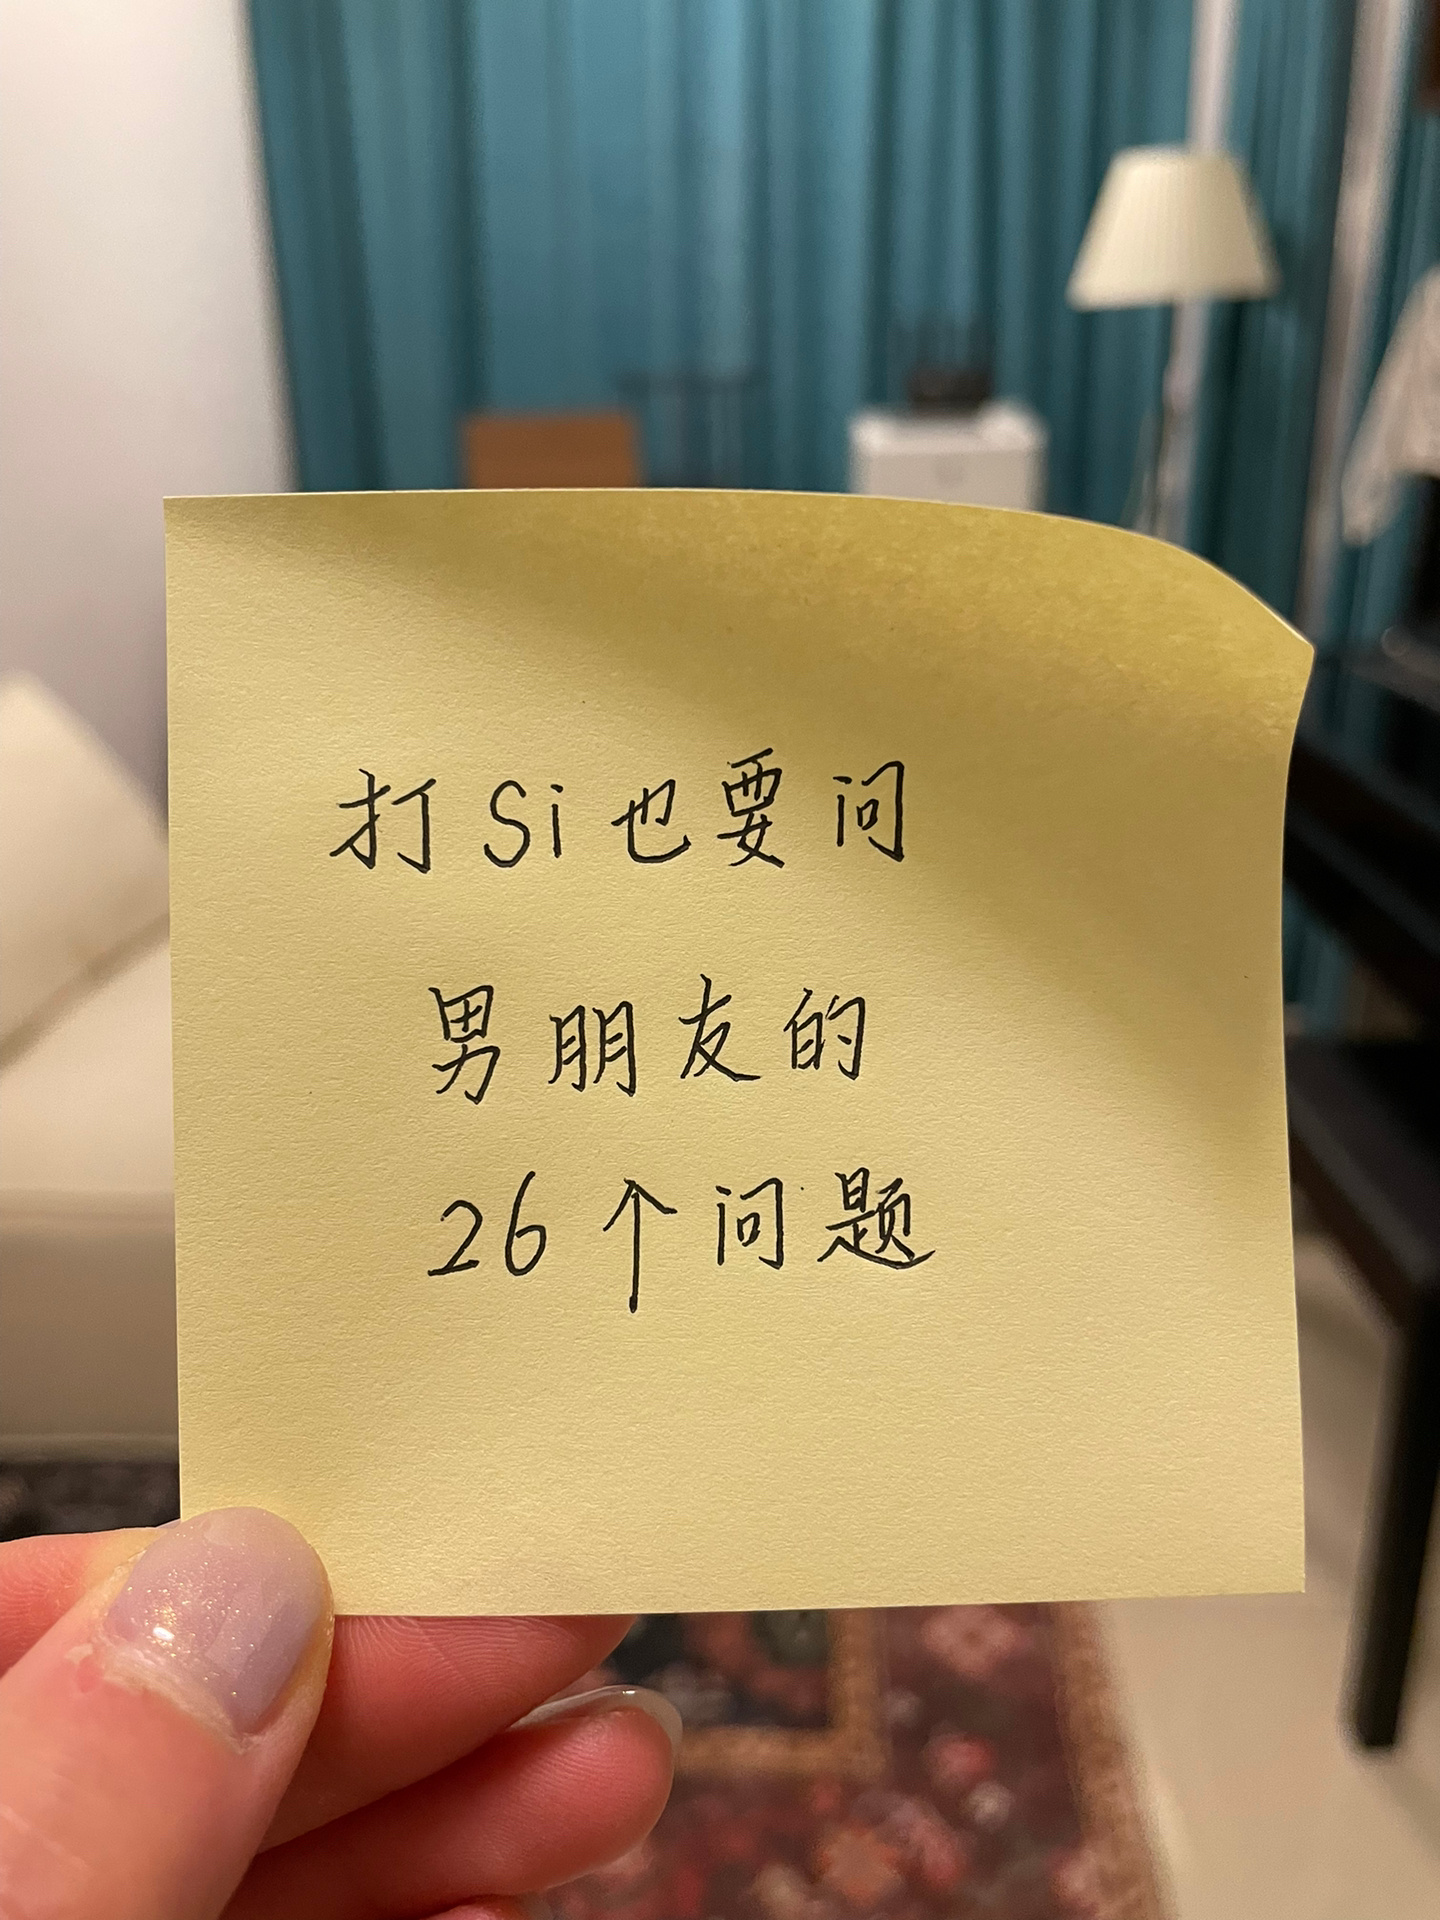 打Si也要问
男朋友的
26个问题